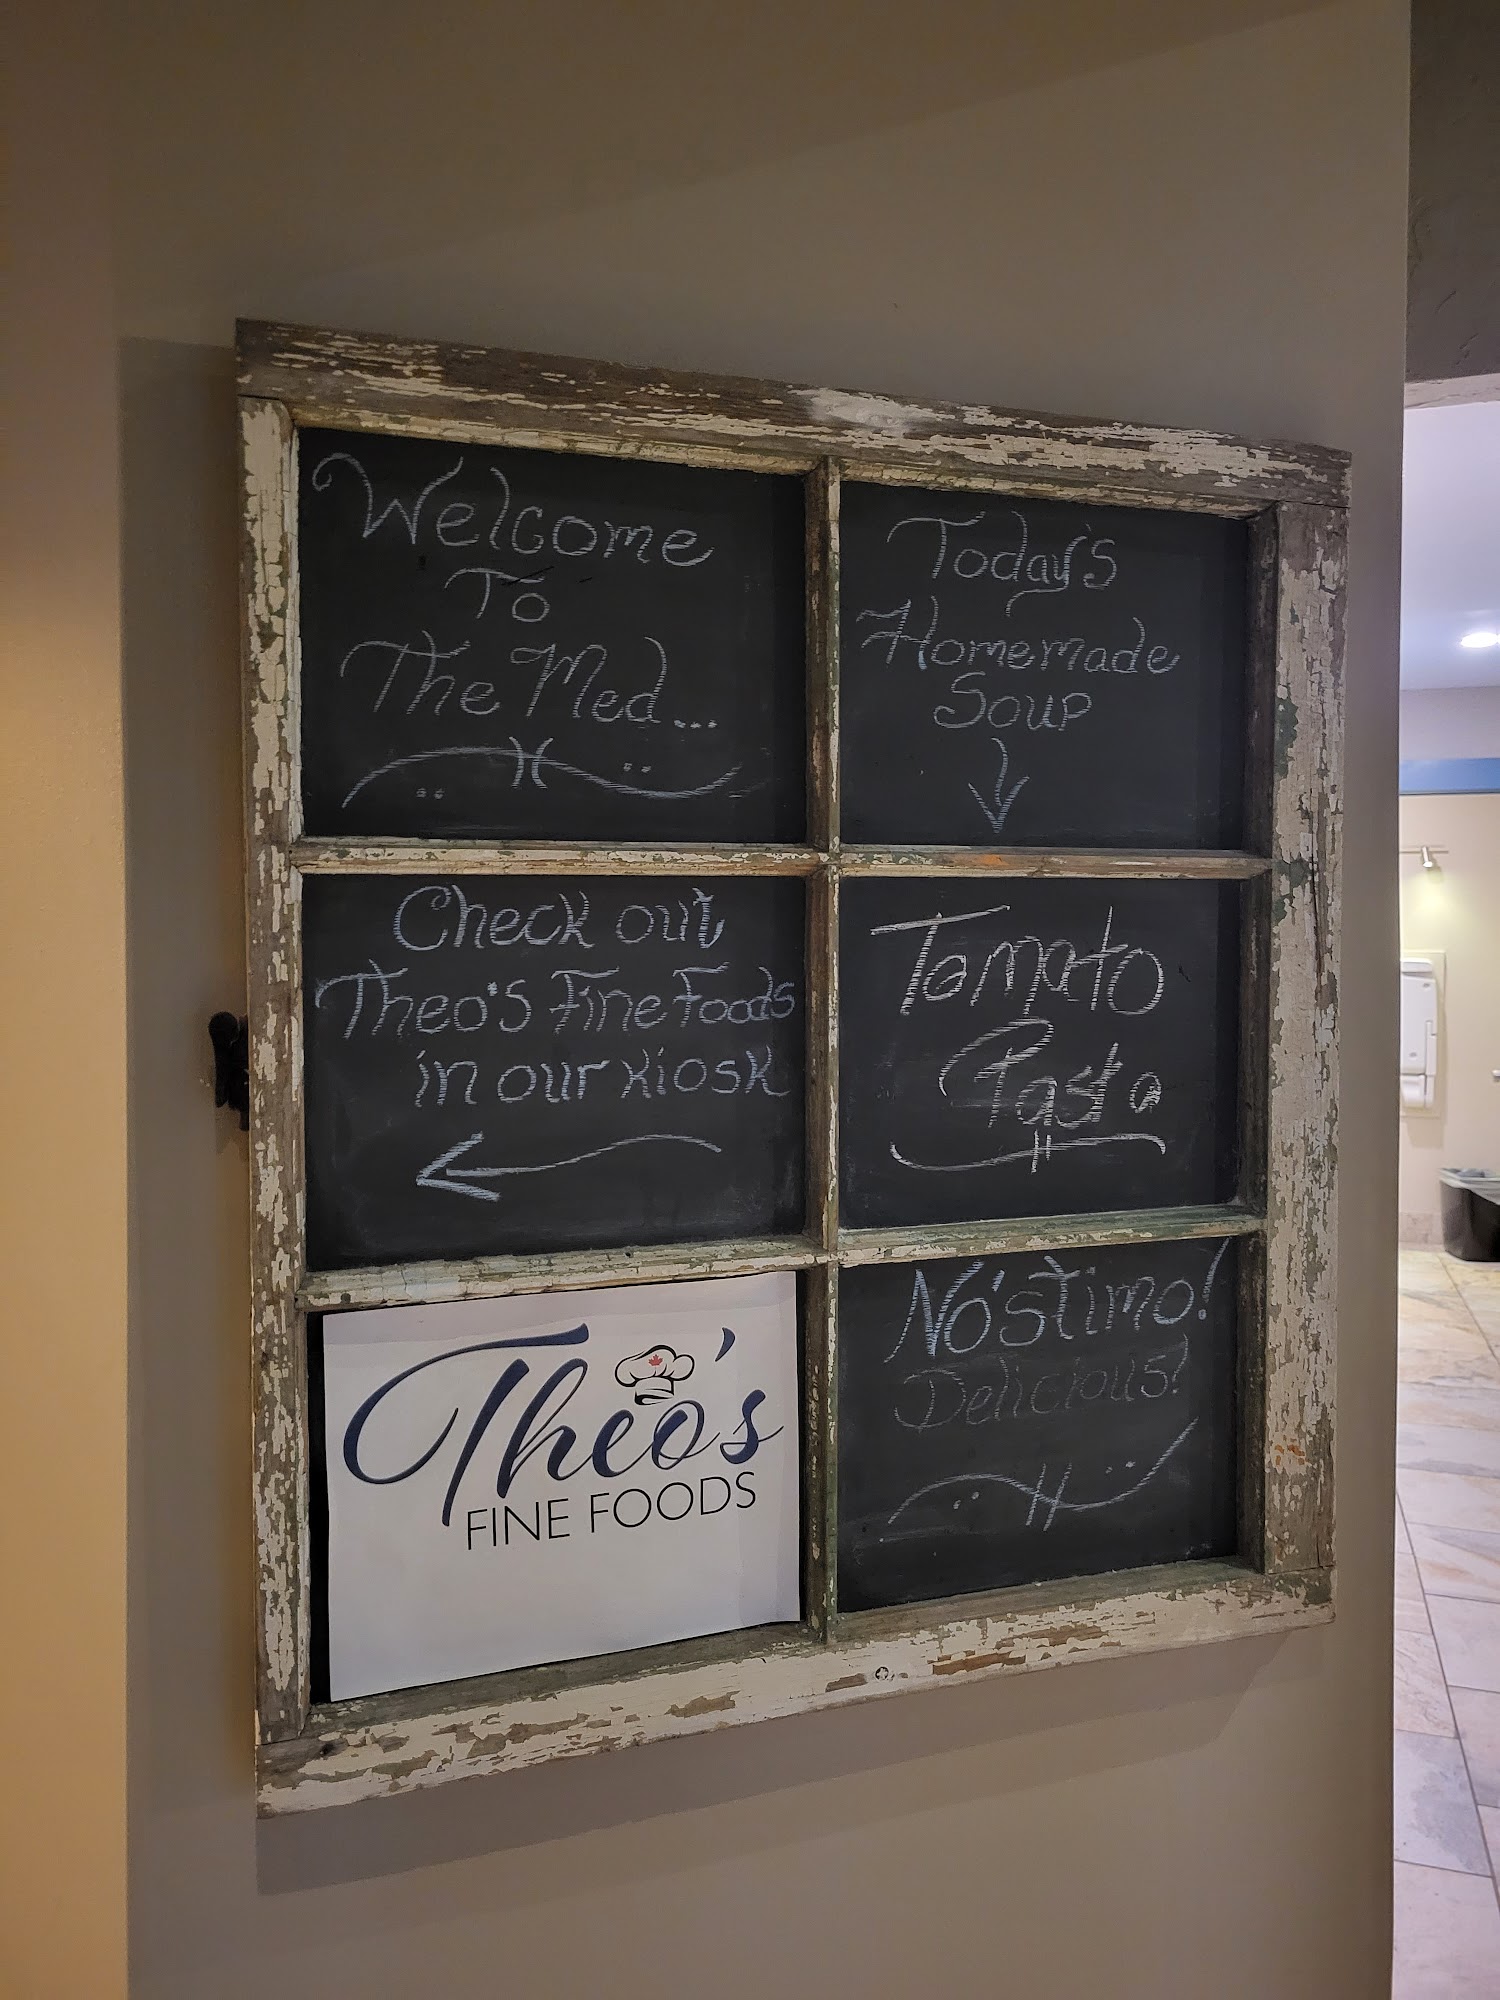 Welcome
To
The Med...
Check out
Theo's Fine Foods
in our kiosk
Theo's
FINE FOODS
Today's
Homemade
Soup
Tomato
Pasta
No'stimo!
Delicious!